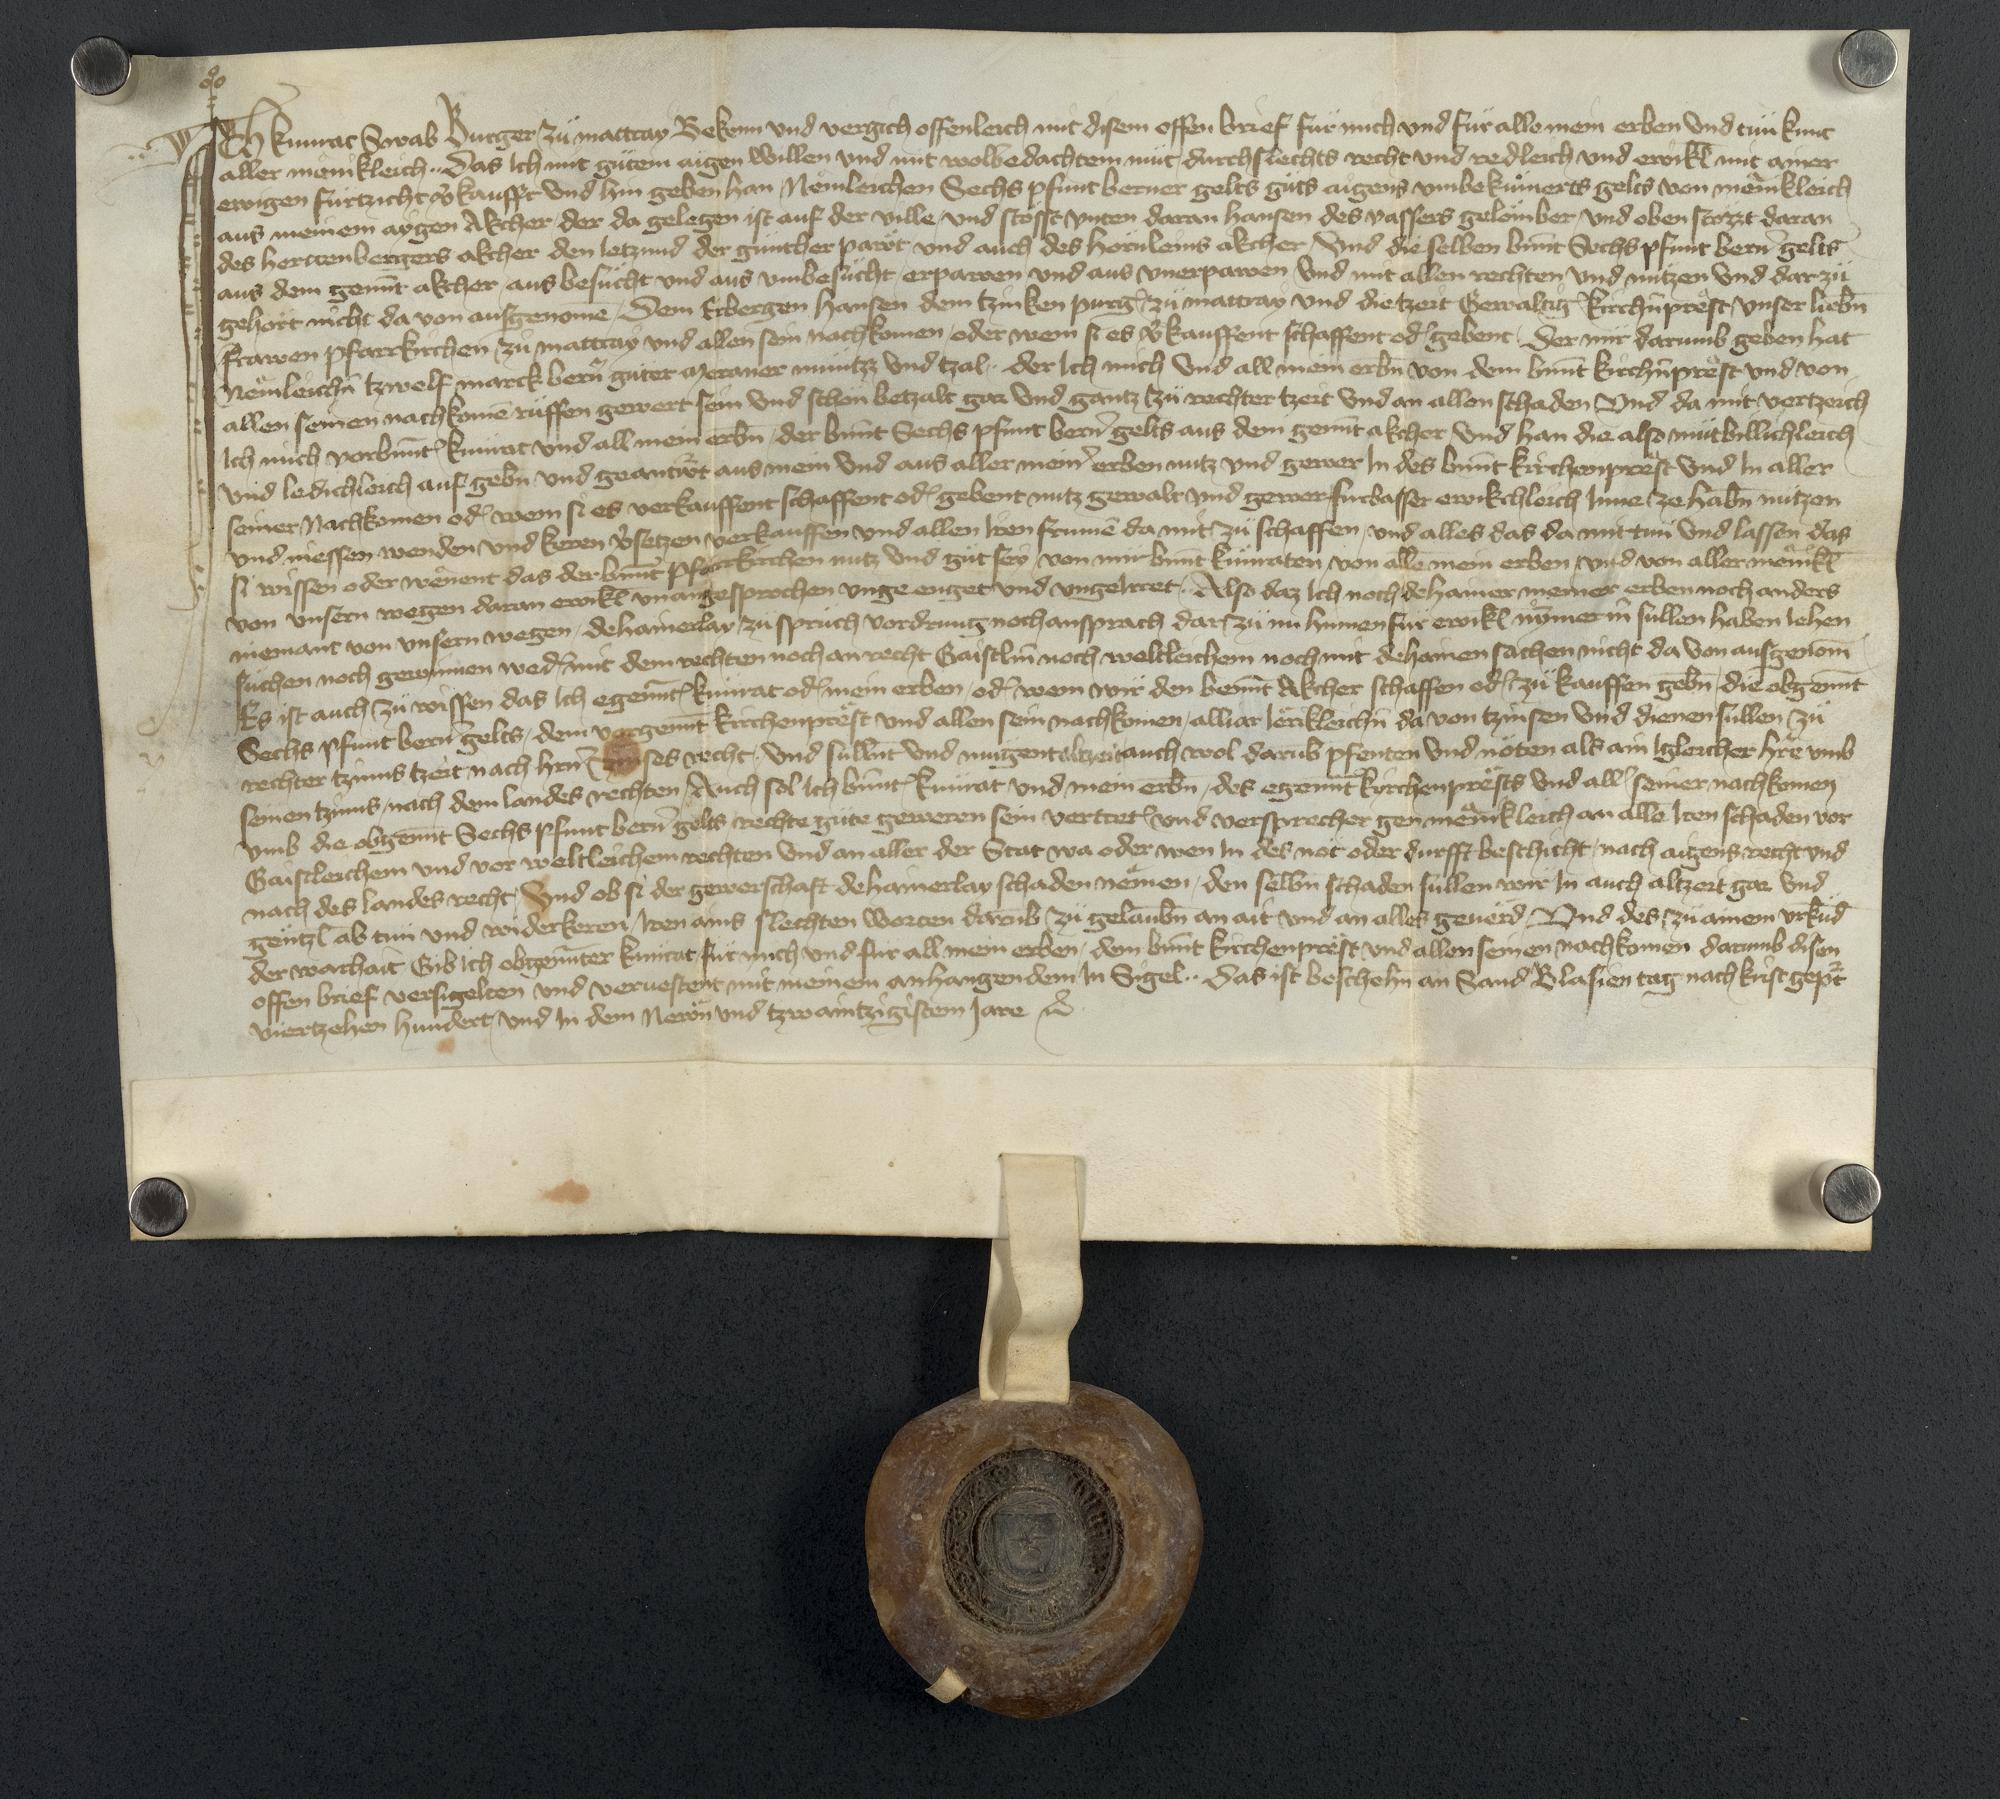 Ich kunrat Swab Burger zů mattray Bekenn vnd vergich offenleich mit disem offen brief für mich vnd für alle mein erben vnd tůn kunt
aller mänikleich .. Das Ich mit gůtem aigen willen vnd mit wolbedachtem můt durchslechts recht vnd redleich vnd ewikl mit ainer
ewigen fürtzicht v̾kaufft vnd hin geben han Nemleichen Sechs pfunt berner gelts gůts aigens vmbekůmerts gelts von mänikleich
aus meinem aygen Akcher der da gelegen ist auf der ville vnd stösst vnten daran hansen des vassers gelöimber vnd oben stözzt daran
des hertenbergers akcher den Ietzund der günther pawt vnd auch des hörnleins akcher Vnd die selben bn̄nt Sechs pfunt bern̾ gelts
aus dem gen̄nt akcher aus besůcht vnd aus vmbesůcht erpawen vnd aus vnerpawen vnd mit allen rechten vnd nützen vnd dar zů
gehört nicht da von ausgenomē Dem Erbergen hansen dem tzinken purg̾ zů mattray vnd die tzeit Gewaltig̾ kirchn̄präst vnser liebn̄
frawen pfarrkirchen zů mattray vnd allen sein nachkomen oder wem si es v̾kauffent schaffent od̾ gebent Der mir darumb geben hat
Nämleichn̄ tzwelf marck bern̾ gůter Meraner münitzz vnd tzal .. der Ich mich vnd all mein erbn̄ von dem bn̄nt kirchn̄präst vnd von
allen seinen nachkomē rüffen gewert sein vnd schon betzalt gar vnd gantz tzů rechter tzeit vnd an allen schaden Vnd da mit vertzeich
Ich mich vorbn̄nt̾ kunrat vnd all mein erbn̄ der bn̄nt Sechs pfunt bern̾ gelts aus dem gen̄nt akcher vnd han die also můtbillichleich
vnd ledichleich auf gebn̄ vnd geantw̾t aus mein vnd aus aller mein̾ erben nutz vnd gewer In des bn̄nt kirchenpräst vnd In aller
seiner Nachkomen od̾ wem si es verkauffent schaffent od̾ gebent nutz gewalt vnd gewer fürbasser ewikchleich Inne ze habn̄ nützen
vnd niessen wenden vnd keren v̾setzen verkauffen vnd allen Iren frumē da mit zů schaffen vnd alles das da mit tůn vnd lassen das
si wissen oder wënent das der bn̄nt pfarrkirchen nutz vnd gůt sey von mir bn̄nt kunraten von allē mein erben vnd von aller mänikl
von vnsern wegen daran ewikl vnangesprochen vnge enget vnd vngeIrret .. Also daz Ich noch dehainer meiner erben noch anders
niemant von vnsern wegen dehainerlay zů sprüch vordrung noch ansprach dar zů nu hinnen für ewikl nÿmer in süllen haben Iehen
sůchen noch gewinnen wed̾ mit dem rechten noch an recht Gaistlin̄ noch weltleichem noch mit dehainen sachen nicht da von ausgenom̄
Es ist auch zů wissen das Ich egen̄nt̾ kunrat od̾ mein erben od̾ wem wir den ben̄nt Akcher schaffen od̾ zů kauffen gebn̄ die obgen̄nt
Sechs pfunt bern̾ gelts dem vorgen̄nt kirchenpräst vnd allen sein nachkomen alliar Iärikleichn̄ da von tzinsen vnd dienen süllen zů
rechter tzinns tzeit nach hrn̄ zinses recht Vnd süllnt vnd mügent altzeit auch wol darūb pfenten vnd nöten als ain Igleicher hr̄e vmb
seinen tzinns nach dem landes rechten Auch sol Ich bn̄nt̾ kunrat vnd mein erbn̄ des egen̄nt kyrchenprästs vnd all̾ seiner nachkomen
vmb die obgen̄nt Sechs pfunt bern̾ gelts rechte gůte geweren sein vertret̾ vnd versprecher gen mänikleich an alle Iren schaden vor
Gaistleichem vnd vor weltleichem rechten vnd an aller der Stat wa oder wen In des not oder durfft beschicht nach aigens recht vnd
nach des landes recht Vnd ob si der gewerschaft dehainerlay schaden nämen den selbn̄ schaden süllen wir In auch altzeit gar vnd
gäntzl ab tůn vnd widerkeren Iren ains slechten worten darūb zů gelaubn̄ an ait vnd an alles geuërd Vnd des zů ainem vrkūd
der warhait Gib Ich obgen̄nter kunrat für mich vnd für all mein erben dem bn̄nt kirchenpräst vnd allen seinen nachkomen darumb disen
offen brief versigelten vnd veruestent mit meinem anhangendem In Sigel .. Das ist beschehn̄ an Sand Blasien tag nach krist gep̄t
viertzehen hundert vnd In dem Newn̄ vnd tzwaintzigistem Jare